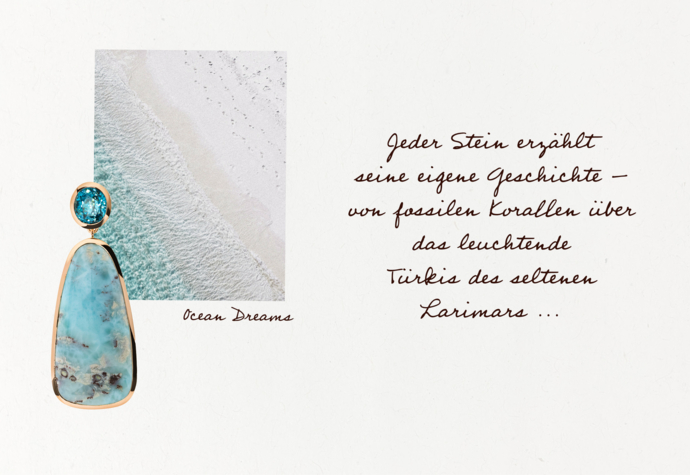 Jeder Stein erzählt
seine eigene Geschichte –
von fossilen Korallen über
das leuchtende
Türkis des seltenen
Larimars ...
Ocean Dreams